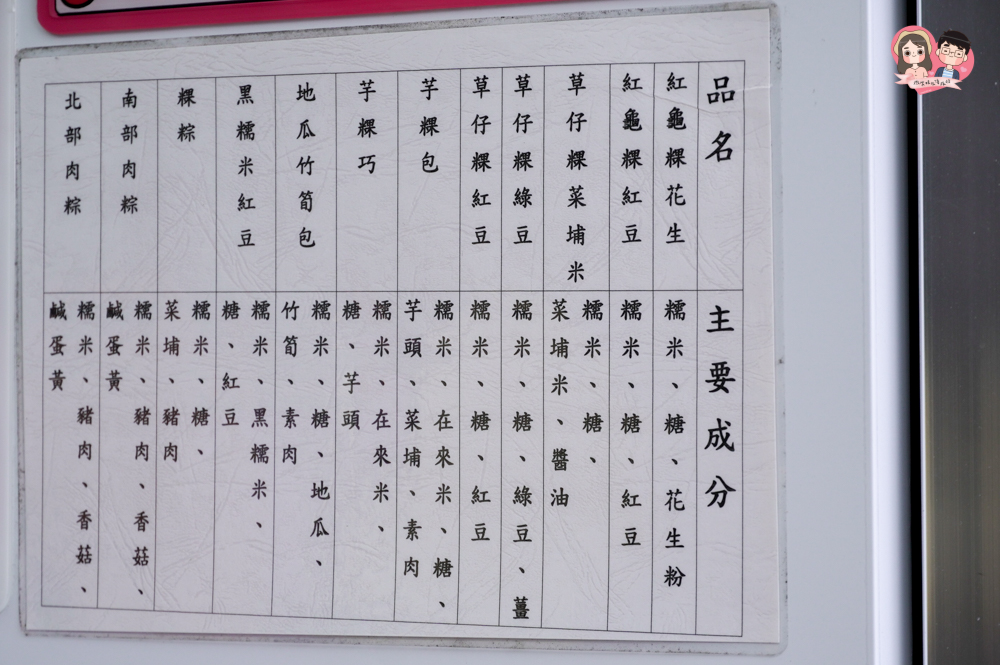 品名
主要成分
紅龜粿花生
糯米、糖、花生粉
紅龜粿紅豆
糯米、糖、紅豆
草仔粿菜埔米
糯米、糖、
菜埔米、醬油
草仔粿綠豆
糯米、糖、綠豆、薑
草仔粿紅豆
糯米、糖、紅豆
芋粿包
糯米、在來米、糖、
芋頭、菜埔、素肉
芋粿巧
糯米、在來米、
糖、芋頭
地瓜竹筍包
糯米、糖、地瓜、
竹筍、素肉
黑糯米紅豆
糯米、黑糯米、
糖、紅豆
粿粽
糯米、糖、
菜埔、豬肉
南部肉粽
糯米、豬肉、香菇、
鹹蛋黃
北部肉粽
糯米、豬肉、香菇、
鹹蛋黃